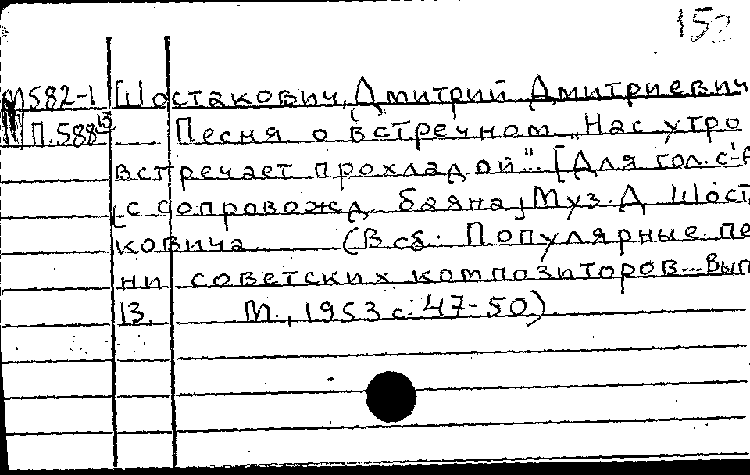 152
М582-1 Шостакович, Дмитрий Дмитриевич
П.588 13 Песня о встречном „Нас утро
встречает прохладой". [Для гол. с ф
[с сопровожд. баяна] Муз. Д. Шост
ковича (В сб. Популярные пе
ни советских композиторов. Вып
13. М., 1953 с. 47-50)